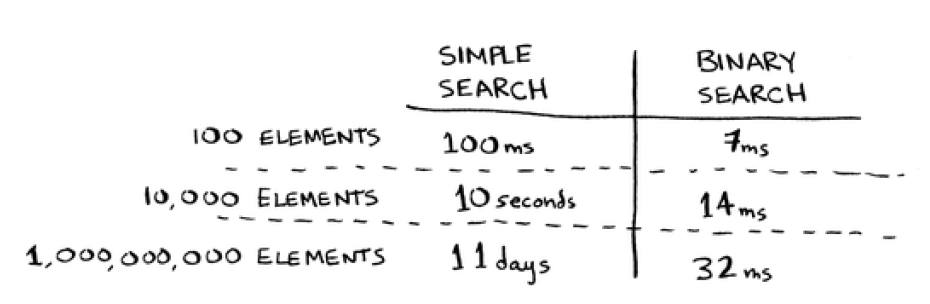 SIMPLE SEARCH
BINARY SEARCH
100 ELEMENTS 100ms 7ms
10,000 ELEMENTS 10 seconds 14ms
1,000,000,000 ELEMENTS 11 days 32ms